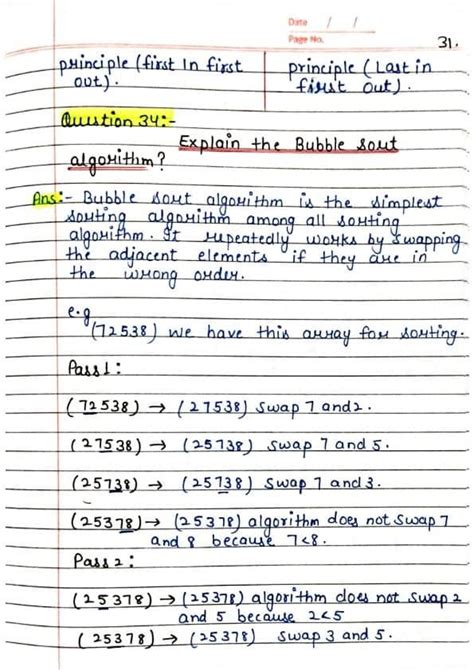 Date / /
Page No.
31.
principle (first In first
out).
principle (Last in
first out).
Question 34:-
Explain the Bubble sort
algorithm?
Ans:- Bubble sort algorithm is the simplest
sorting algorithm among all sorting
algorithm. It repeatedly works by swapping
the adjacent elements if they are in
the wrong order.
e.g
(72538) we have this array for sorting.
Pass1:
(72538) → (27538) swap 7 and 2.
(27538) → (25738) swap 7 and 5.
(25738) → (25738) swap 7 and 3.
(25378) → (25378) algorithm does not swap 7
and 8 because 7<8.
Pass 2:
(25378) → (25378) algorithm does not swap 2
and 5 because 2<5
(25378) → (25378) swap 3 and 5.